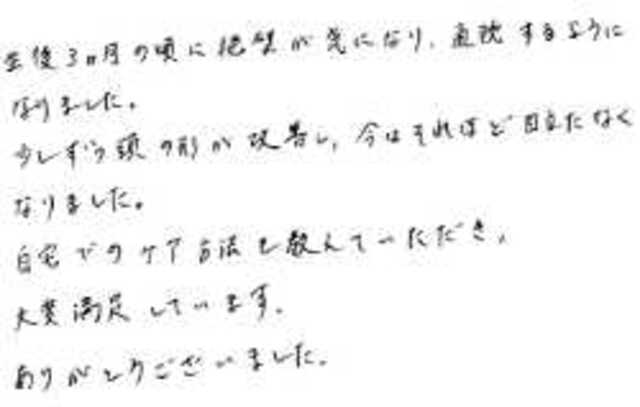 生後3ヵ月の頃に絶壁が気になり、通院するように
なりました。
少しずつ頭の形が改善し、今はそれほど目立たなく
なりました。
自宅でのケア方法も教えていただき、
大変満足しています。
ありがとうございました。